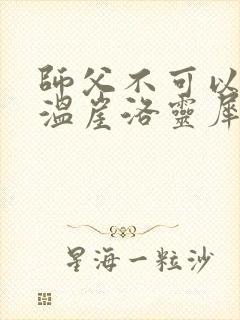 師父不可以
溫崖洛靈犀
星海一粒沙